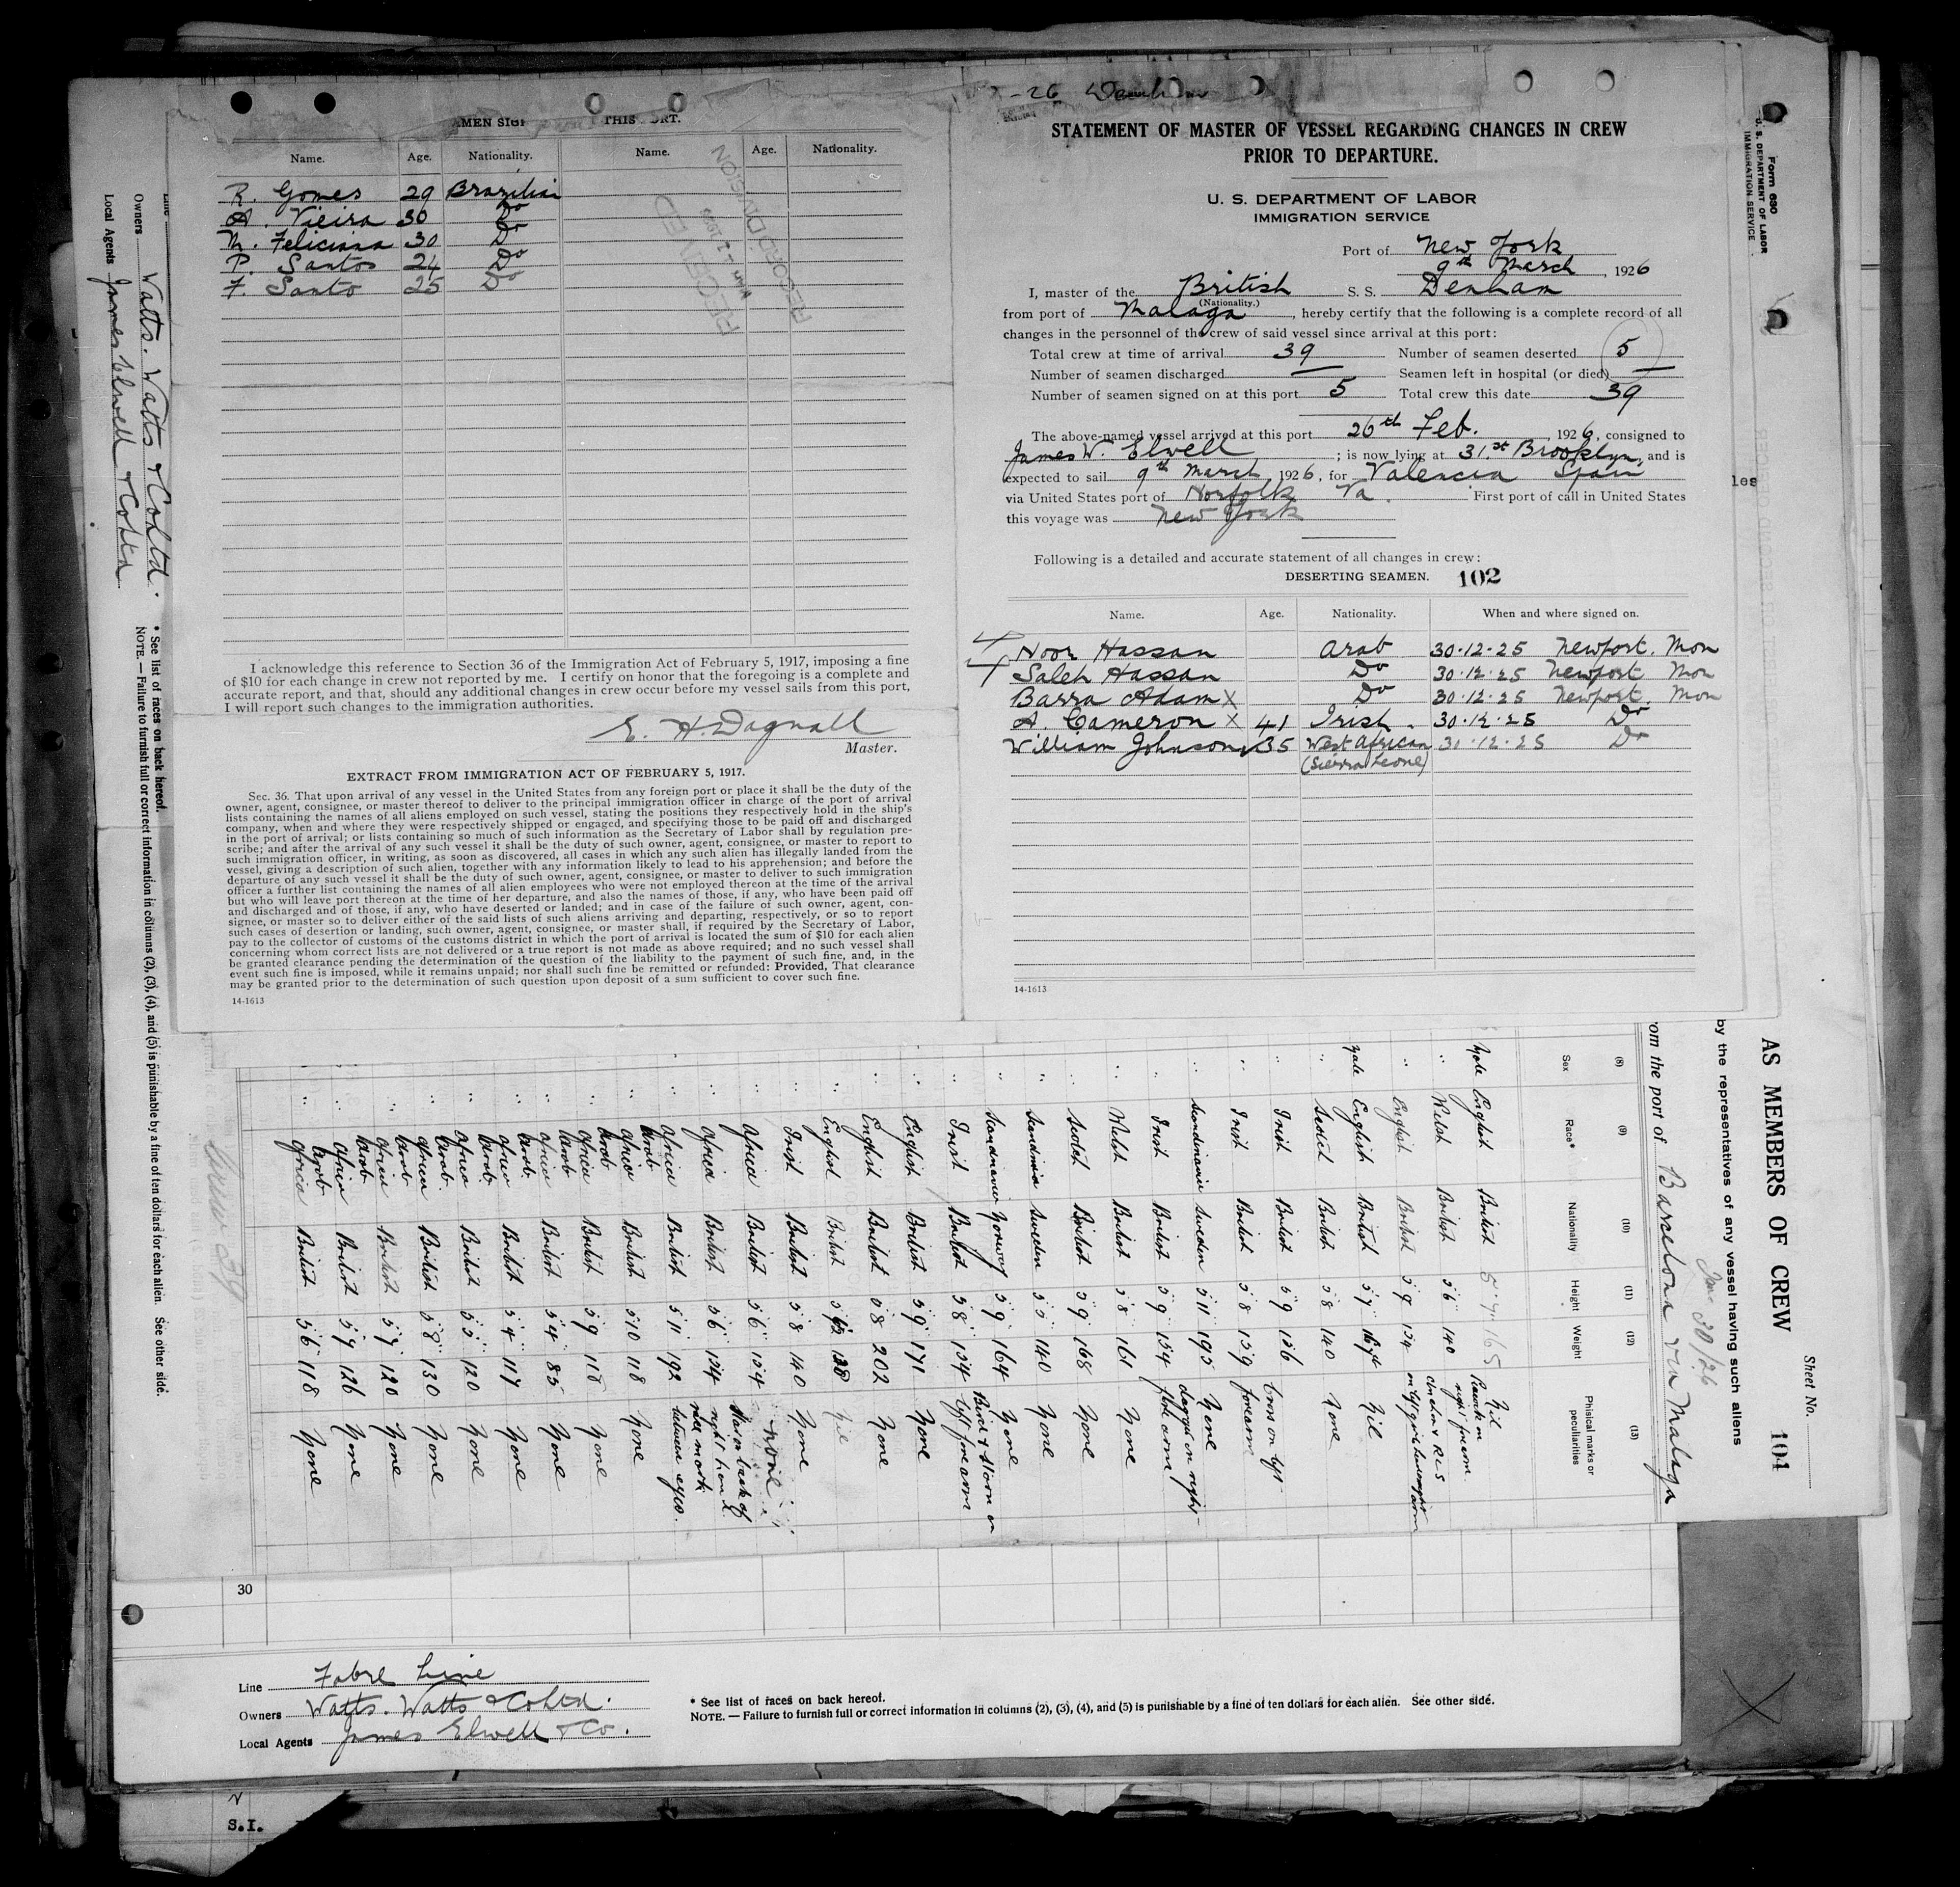 -26 Denham
AMEN SIG THIS PORT.
Name. Age. Nationality. Name. Age. Nationality.
R. Gomes 29 Brazilian
A. Vieira 30 Do
M. Feliciana 30 Do
P. Santos 24 Do
F. Santo 25 Do
RECEIVED
RECORD DIVISION
I acknowledge this reference to Section 36 of the Immigration Act of February 5, 1917, imposing a fine
of $10 for each change in crew not reported by me. I certify on honor that the foregoing is a complete and
accurate report, and that, should any additional changes in crew occur before my vessel sails from this port,
I will report such changes to the immigration authorities.
E. H. Dagnall
Master.
EXTRACT FROM IMMIGRATION ACT OF FEBRUARY 5, 1917.
Sec. 36. That upon arrival of any vessel in the United States from any foreign port or place it shall be the duty of the
owner, agent, consignee, or master thereof to deliver to the principal immigration officer in charge of the port of arrival
lists containing the names of all aliens employed on such vessel, stating the positions they respectively hold in the ship's
company, when and where they were respectively shipped or engaged, and specifying those to be paid off and discharged
in the port of arrival; or lists containing so much of such information as the Secretary of Labor shall by regulation pre-
scribe; and after the arrival of any such vessel it shall be the duty of such owner, agent, consignee, or master to report to
such immigration officer, in writing, as soon as discovered, all cases in which any such alien has illegally landed from the
vessel, giving a description of such alien, together with any information likely to lead to his apprehension; and before the
departure of any such vessel it shall be the duty of such owner, agent, consignee, or master to deliver to such immigration
officer a further list containing the names of all alien employees who were not employed thereon at the time of the arrival
but who will leave port thereon at the time of her departure, and also the names of those, if any, who have been paid off
and discharged and of those, if any, who have deserted or landed; and in case of the failure of such owner, agent, con-
signee, or master so to deliver either of the said lists of such aliens arriving and departing, respectively, or so to report
such cases of desertion or landing, such owner, agent, consignee, or master shall, if required by the Secretary of Labor,
pay to the collector of customs of the customs district in which the port of arrival is located the sum of $10 for each alien
concerning whom correct lists are not delivered or a true report is not made as above required; and no such vessel shall
be granted clearance pending the determination of the question of the liability to the payment of such fine, and, in the
event such fine is imposed, while it remains unpaid; nor shall such fine be remitted or refunded: Provided, That clearance
may be granted prior to the determination of such question upon deposit of a sum sufficient to cover such fine.
14-1613
Form 630
U. S. DEPARTMENT OF LABOR
IMMIGRATION SERVICE
STATEMENT OF MASTER OF VESSEL REGARDING CHANGES IN CREW
PRIOR TO DEPARTURE.
U. S. DEPARTMENT OF LABOR
IMMIGRATION SERVICE
Port of New York
9th March, 1926
I, master of the British S. S. Denham
(Nationality.)
from port of Malaga, hereby certify that the following is a complete record of all
changes in the personnel of the crew of said vessel since arrival at this port:
Total crew at time of arrival 39 Number of seamen deserted 5
Number of seamen discharged — Seamen left in hospital (or died) —
Number of seamen signed on at this port 5 Total crew this date 39
The above-named vessel arrived at this port 26th Feb., 1926, consigned to
James W. Elwell; is now lying at 31.st Brooklyn, and is
expected to sail 9th March, 1926, for Valencia Spain
via United States port of Norfolk Va. First port of call in United States
this voyage was New York
Following is a detailed and accurate statement of all changes in crew:
DESERTING SEAMEN. 102
Name. Age. Nationality. When and where signed on.
Noor Hassan Arab 30.12.25 Newport. Mon
Saleh Hassan Do 30.12.25 Newport Mon
Barra Adam X Do 30.12.25 Newport. Mon
A. Cameron X 41 Irish. 30.12.25 Do
William Johnson 35 West African 30.12.25 Do
(Sierra Leone)
14-1613
les
Owners Watts. Watts & Co Ltd.
Local Agents James Elwell & Co Ltd
* See list of races on back hereof.
NOTE.—Failure to furnish full or correct information in columns (2), (3), (4), and (5) is punishable by a fine of ten dollars for each alien. See other side.
Sheet No. 104
AS MEMBERS OF CREW
by the representatives of any vessel having such aliens
Jan 30/26
om the port of Barcelona via Malaga
(8) (9) (10) (11) (12) (13)
Sex Race* Nationality Height Weight Phisical marks or peculiarities
Male English British 5 9 165 Nil
" Welsh British 5 6 140
" English British 5 9 154
Male English British 5 7 Nil
" Scotch British 5 8 140 None
" Irish British 5 9 156 Cross on left forearm
" Irish British 5 8 159
" Scandinavia Sweden 5 11 195 None
" Irish British 5 9 154
" Welsh British 5 8 161 None
" Scotch British 5 9 168 None
" Scandinavia Sweden 5 5 140 None
" Scandinavia Norway 5 9 164 None
" Irish British 5 8 154
" English British 5 9 171 None
" English British 5 8 202 None
" English British 138 Nil
" Irish British 5 8 140 None
" Africa British 5 6 154 None
" Africa British 5 6 154 Scar on back of right hand
" Africa British 5 11 192 between eyes.
" Africa Arab British 5 10 118 None
" Africa Arab British 5 9 118 None
" Africa Arab British 5 4 85 None
" Africa Arab British 5 4 117 None
" Africa Arab British 5 5 120 None
" Africa Arab British 5 8 130 None
" Africa Arab British 5 7 120 None
" Africa Arab British 5 7 126 None
" Africa Arab British 5 6 118 None
Crew 39
30
Line Fabre Line
Owners Watts. Watts & Co Ltd.
Local Agents James Elwell & Co.
* See list of races on back hereof.
NOTE.—Failure to furnish full or correct information in columns (2), (3), (4), and (5) is punishable by a fine of ten dollars for each alien. See other side.
S.I.